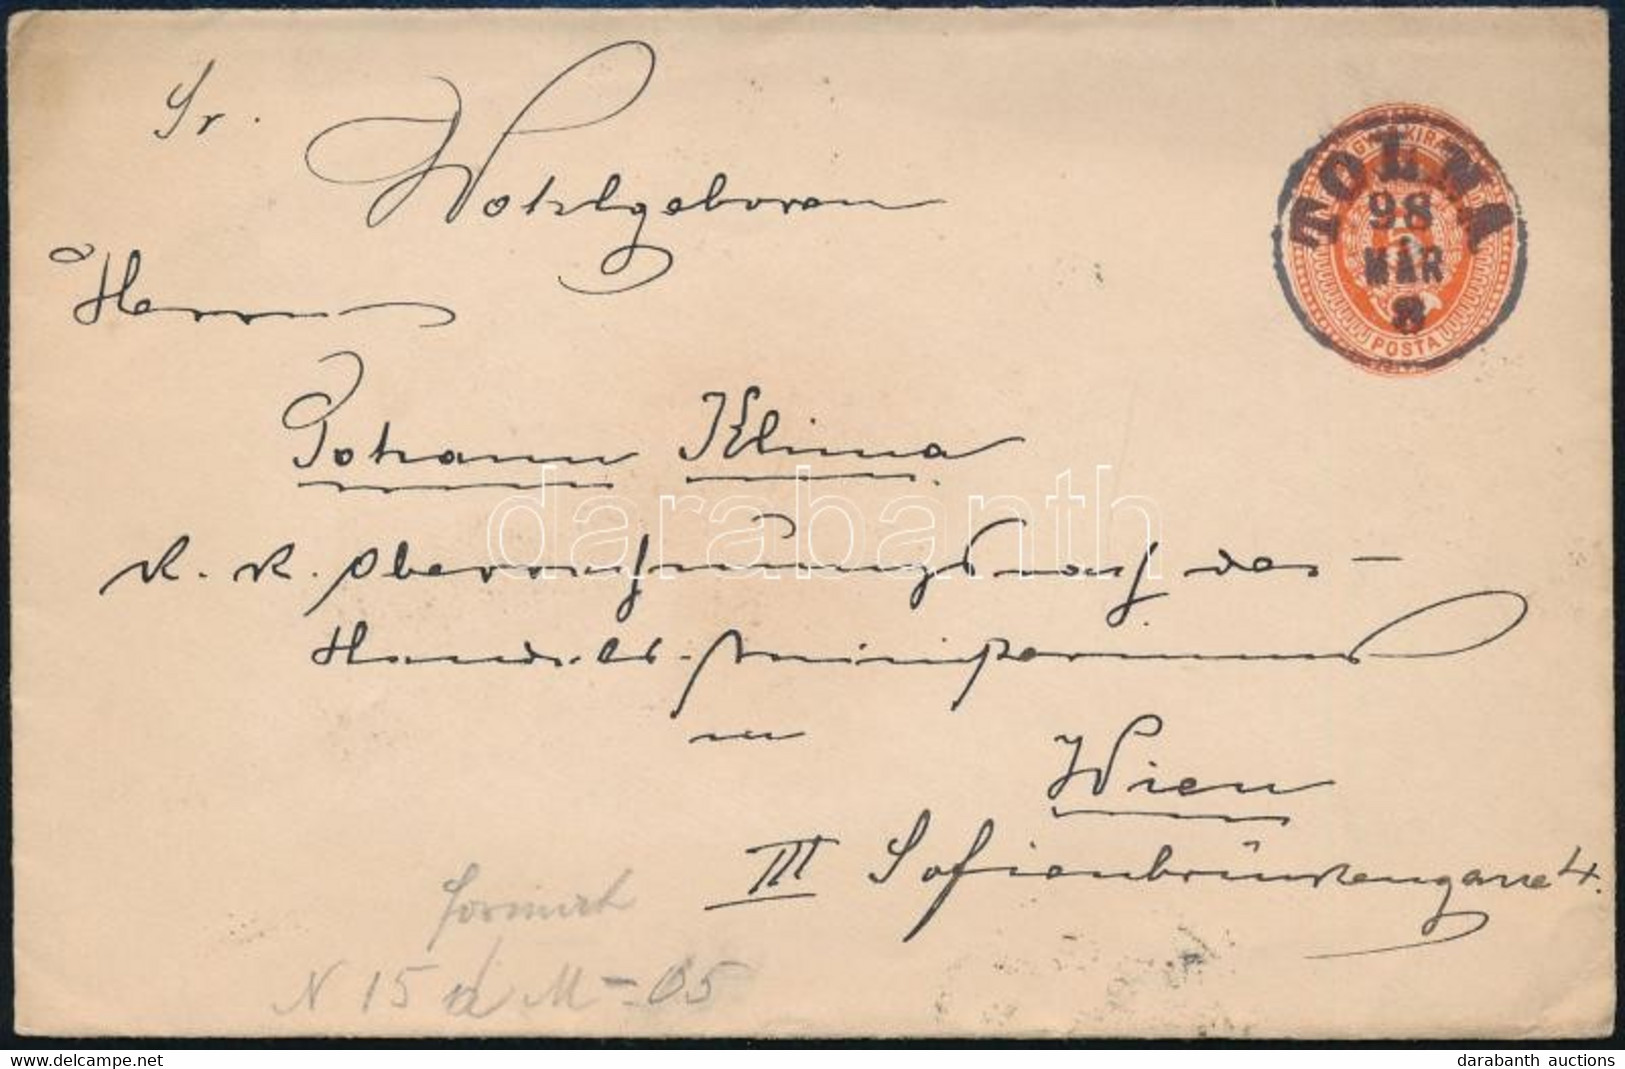 Sr. Wohlgeboren
Herrn
Johann Klima
k. k. Oberrechnungsrath des
Handels-Ministeriums
in
Wien
III Sofienbrückengasse 4.
MAGY. KIR.
TOLNA
98
MÁR
8
POSTA
N 15 d M - 65
darabanth
www.delcampe.net
darabanth auctions